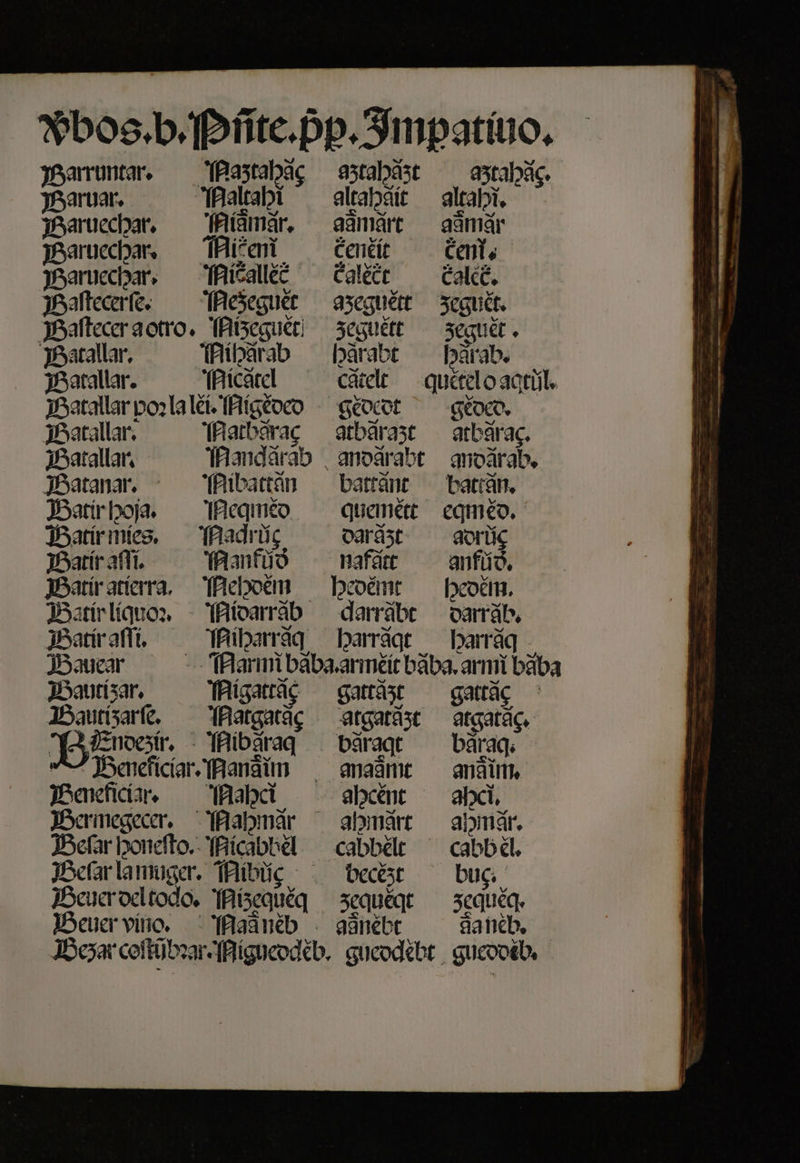 Ꝟbos.b. Pn̄te. p̄p. Jmpatiuo.
Barruntar. Naztahăç aztahăzt aztahăç.
Baruar. Naltahĭ altahăit altahĭ.
Baruechar. Niămăr. aămărt aămăr
Baruechar. Niĉenĭ ĉenĕit ĉenĭ.
Baruechar. Niĉallĕĉ ĉalĕĉt ĉalĕĉ.
Bastecerse. Nezeguĕt azeguĕtt zeguĕt.
Bastecer a otro. Nizeguĕt zeguĕtt zeguĕt.
Batallar. Nihărab hărabt hărab.
Batallar. Nicătel cătelt quĕtel o aqtŭl.
Batallar por la lĕi. Nigĕdeo gĕdeot gĕdeo.
Batallar. Nathăraç athărazt athăraç.
Batallar. Nandărab andărabt andărab.
Batanar. Nibattăn battănt battăn.
Batir hoja. Neqmĕd quemĕtt eqmĕd.
Batir mies. Nadrŭç darăzt adrŭç
Batir assi. Nanfŭd nafătt anfŭd.
Batir a tierra. Nehdĕm hedĕmt hedĕm.
Batir liquor. Nidarrăb darrăbt darrăb.
Batir assi. Niharrăq harrăqt harrăq
Baucar Narmi băba. armĕit băba. armi băba
Bautizar. Nigattăç gattăzt gattăç
Bautizarse. Natgatăç atgatăzt atgatăç.
BEndezir. Nibăraq băraqt băraq.
Beneficiar. Nanăim anaămt anăim.
Beneficiar. Nahci ahcĕnt ahci.
Bermegecer. Nahmăr ahmărt ahmăr.
Besar honesto. Nicabbĕl cabbĕlt cabbĕl.
Besar la muger. Nibŭç becĕzt buç.
Beuer del todo. Nizequĕq zequĕqt zequĕq.
Beuer vino. Naănĕb aănĕbt ăanĕb.
Bezar costŭbrar. Nigueddĕb. gueddĕbt gueddĕb.